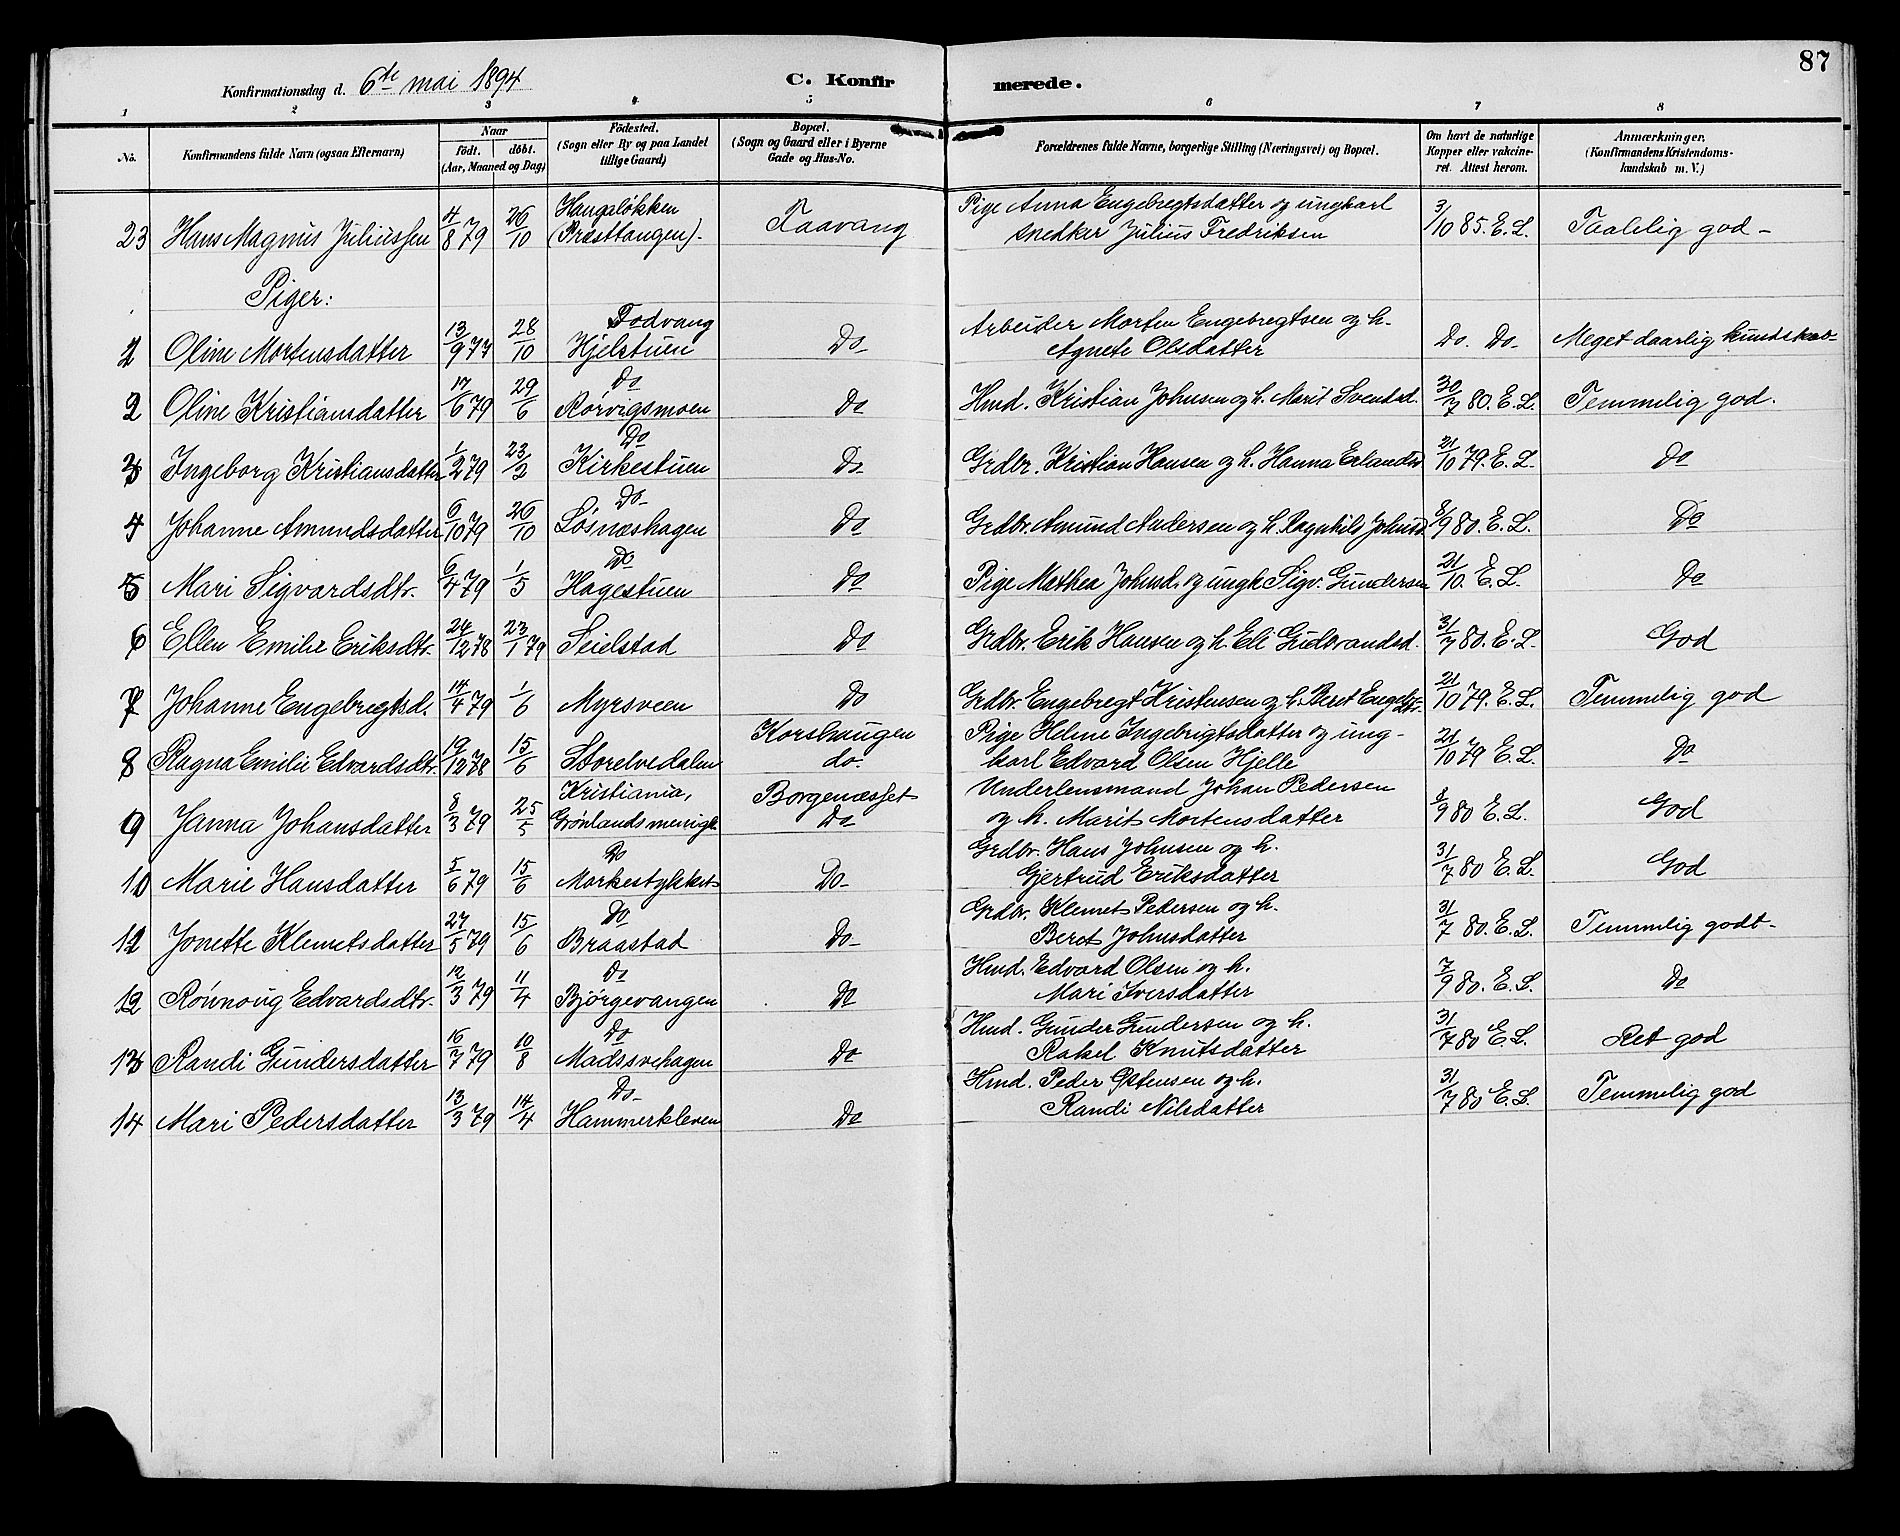 87
Konfirmationsdag d. 6te mai 1894
C. Konfirmerede.
1 2 3 4 5 6 7 8
No. Konfirmandens fulde Navn (ogsaa Efternavn) Naar födt. döbt. (Aar, Maaned og Dag) Födested. (Sogn eller By og paa Landet tillige Gaard) Bopæl. (Sogn og Gaard eller i Byerne Gade og Hus-No. Forældrenes fulde Navne, borgerlige Stilling (Næringsvei) og Bopæl. Om havt de naturlige Kopper eller vakcineret. Attest herom. Anmærkninger. (Konfirmandens Kristendomskundskab m. V.)
23 Hans Magnus Juliussen 4/8 79 26/10 Haugsløkken (Præsttangen). Faavang Pige Anna Engebregtsdatter og ungkarl snedker Julius Fredriksen 3/10 85. E. L. Taalelig god
Piger:
1 Oline Mortensdatter 13/9 77 28/10 Fodvang Hjelstuen Do Arbeider Morten Engebregtsen og h. Agnete Olsdatter Do. Do. Meget daarlig kundskab
2 Oline Kristiansdatter 17/6 79 29/6 Do Rörvigsmoen Do Hmd. Kristian Johnsen og h. Marit Svendsd. 30/7 80. E. L. Temmelig god.
3 Ingeborg Kristiansdatter 1/2 79 23/2 Do Kirkestuen Do Grdbr. Kristian Hansen og h. Hanna Erlandsd. 21/10 79. E. L. Do
4 Johanne Amundsdatter 6/10 79 26/10 Do Løsnæshagen Do Grdbr. Amund Andersen og h. Ragnhild Johnsd. 8/9 80. E. L. Do
5 Mari Sigvardsdtr. 6/4 79 1/5 Do Hagestuen Do Pige Mathea Johnsd. og ungk. Sigv. Gundersen 21/10. E. L. Do
6 Ellen Emilie Eriksdtr. 24/12 78 23/1 79 Seielstad Do Grdbr. Erik Hansen og h. Eli Gudbrandsd. 31/7 80. E. L. God
7 Johanne Engebregtsd. 14/4 79 1/6 Myrsveen Do Grdbr. Engebregt Kristensen og h. Beret Engebr. 21/10 79. E. L. Temmelig god
8 Ragna Emilie Edvardsdtr. 19/12 78 15/6 Storelvedalen Korshaugen do. Pige Helene Ingebrigtsdatter og ungkarl Edvard Olsen Hjelle 21/10 79 E. L. Do
9 Janna Johansdatter 8/3 79 25/5 Kristiania, Grønlands menigh. Borgenæsset Do Underlensmand Johan Pedersen og h. Marit Mortensdatter 8/9 80 E. L. God
10 Marie Hansdatter 5/6 79 15/6 Do Morkestykket Do Grdbr. Hans Johnsen og h. Gjertrud Eriksdatter 31/7 80 E. L. God
11 Jonette Klemetsdatter 27/5 79 15/6 Do Braastad Do Grdbr. Klemet Pedersen og h. Beret Johnsdatter 31/7 80. E. L. Temmelig godt
12 Rönnoug Edvardsdtr. 12/3 79 11/4 Do Bjørgevangen Do Hmd. Edvard Olsen og h. Mari Iversdatter 7/9 80. E. L. Do
13 Randi Gundersdatter 16/7 79 10/8 Do Madssvehagen Do Hmd. Gunder Gundersen og h. Rakel Knutsdatter 31/7 80 E. L. Ret god
14 Mari Pedersdatter 13/3 79 14/4 Do Hammerkleven Do Hmd. Peder Østensen og h. Randi Nilsdatter 31/7 80 E. L. Temmelig god